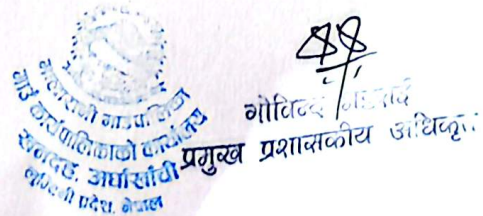 मालारानी गाउँपालिका
गाउँ कार्यपालिकाको कार्यालय
अर्घाखाँची
लुम्बिनी प्रदेश, नेपाल
गोविन्द
प्रमुख प्रशासकीय अधिकृत